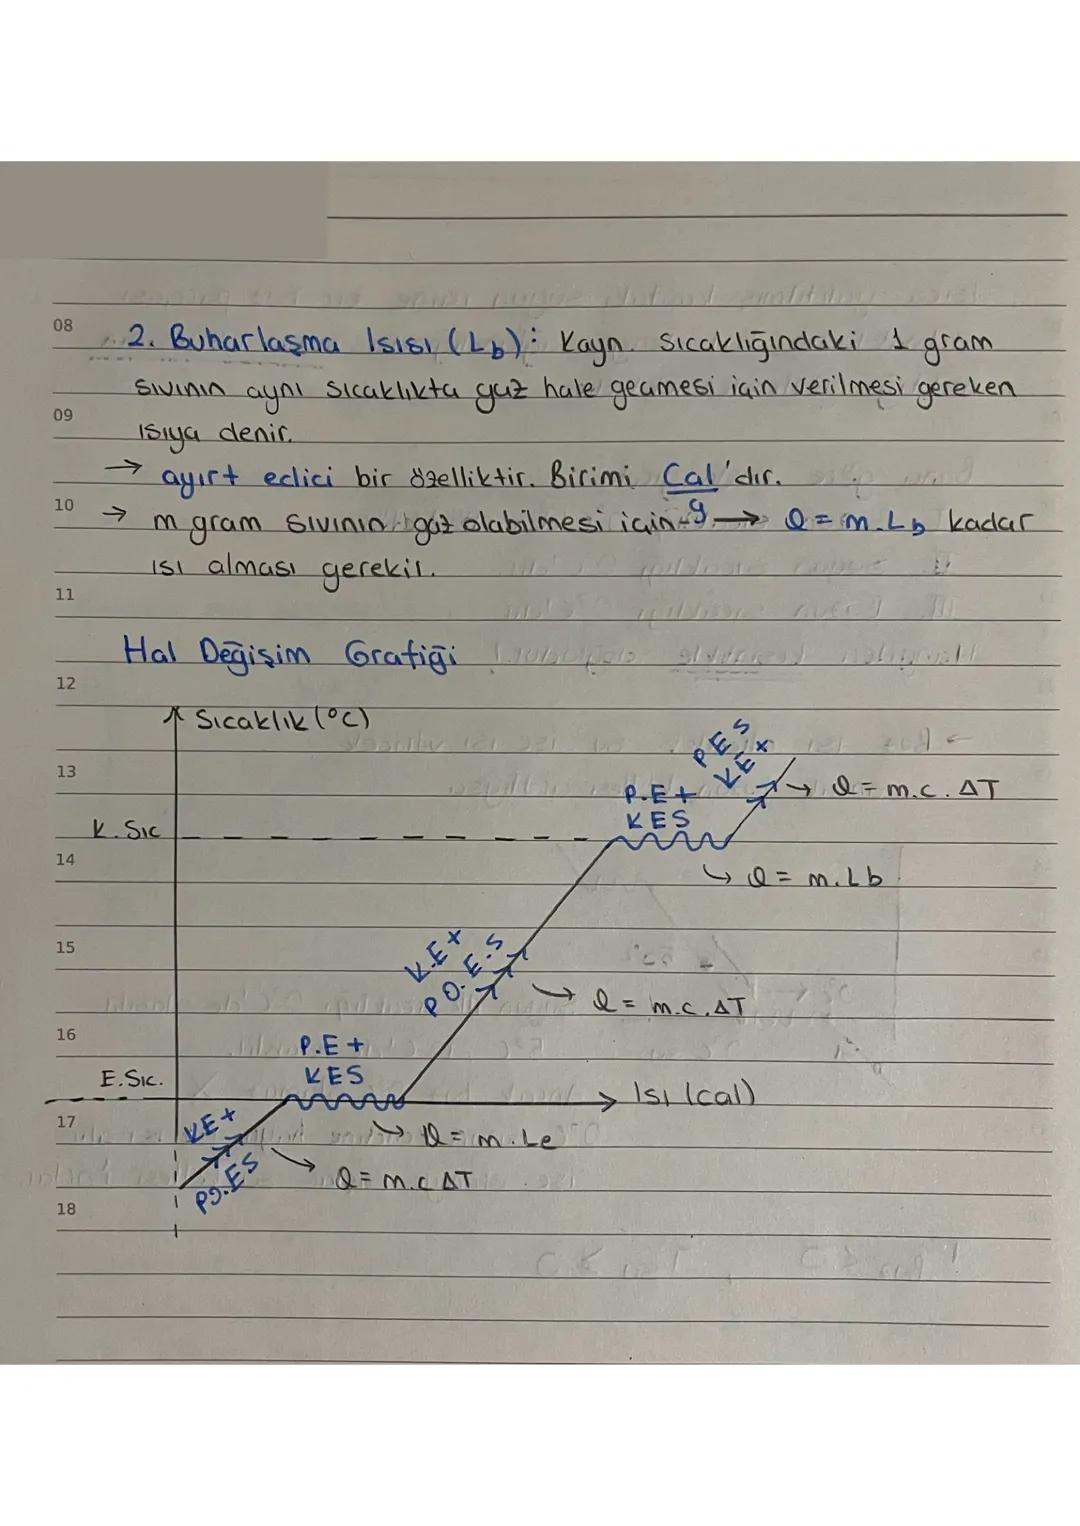 08
2. Buharlaşma Isısı (Lb): Kayn. Sıcaklığındaki 1 gram
sıvının aynı sıcaklıkta gaz hale geçmesi için verilmesi gereken
09
ısıya denir.
→ ayırt edici bir özelliktir. Birimi Cal/g'dır.
10
→ m gram sıvının gaz olabilmesi için → Q = m.Lb kadar
ısı alması gerekir.
11
Hal Değişim Grafiği
12
Sıcaklık (°C)
PES
KE+
13
P.E+
→ Q = m.c.ΔT
KES
K.Sıc
14
→ Q = m.Lb
15
K.E+
PO.E.S
→ Q = m.c.ΔT
16
P.E+
KES
E.Sıc.
Isı (cal)
17
KE+
→ Q = m.Le
PO.ES
→ Q = m.c ΔT
18